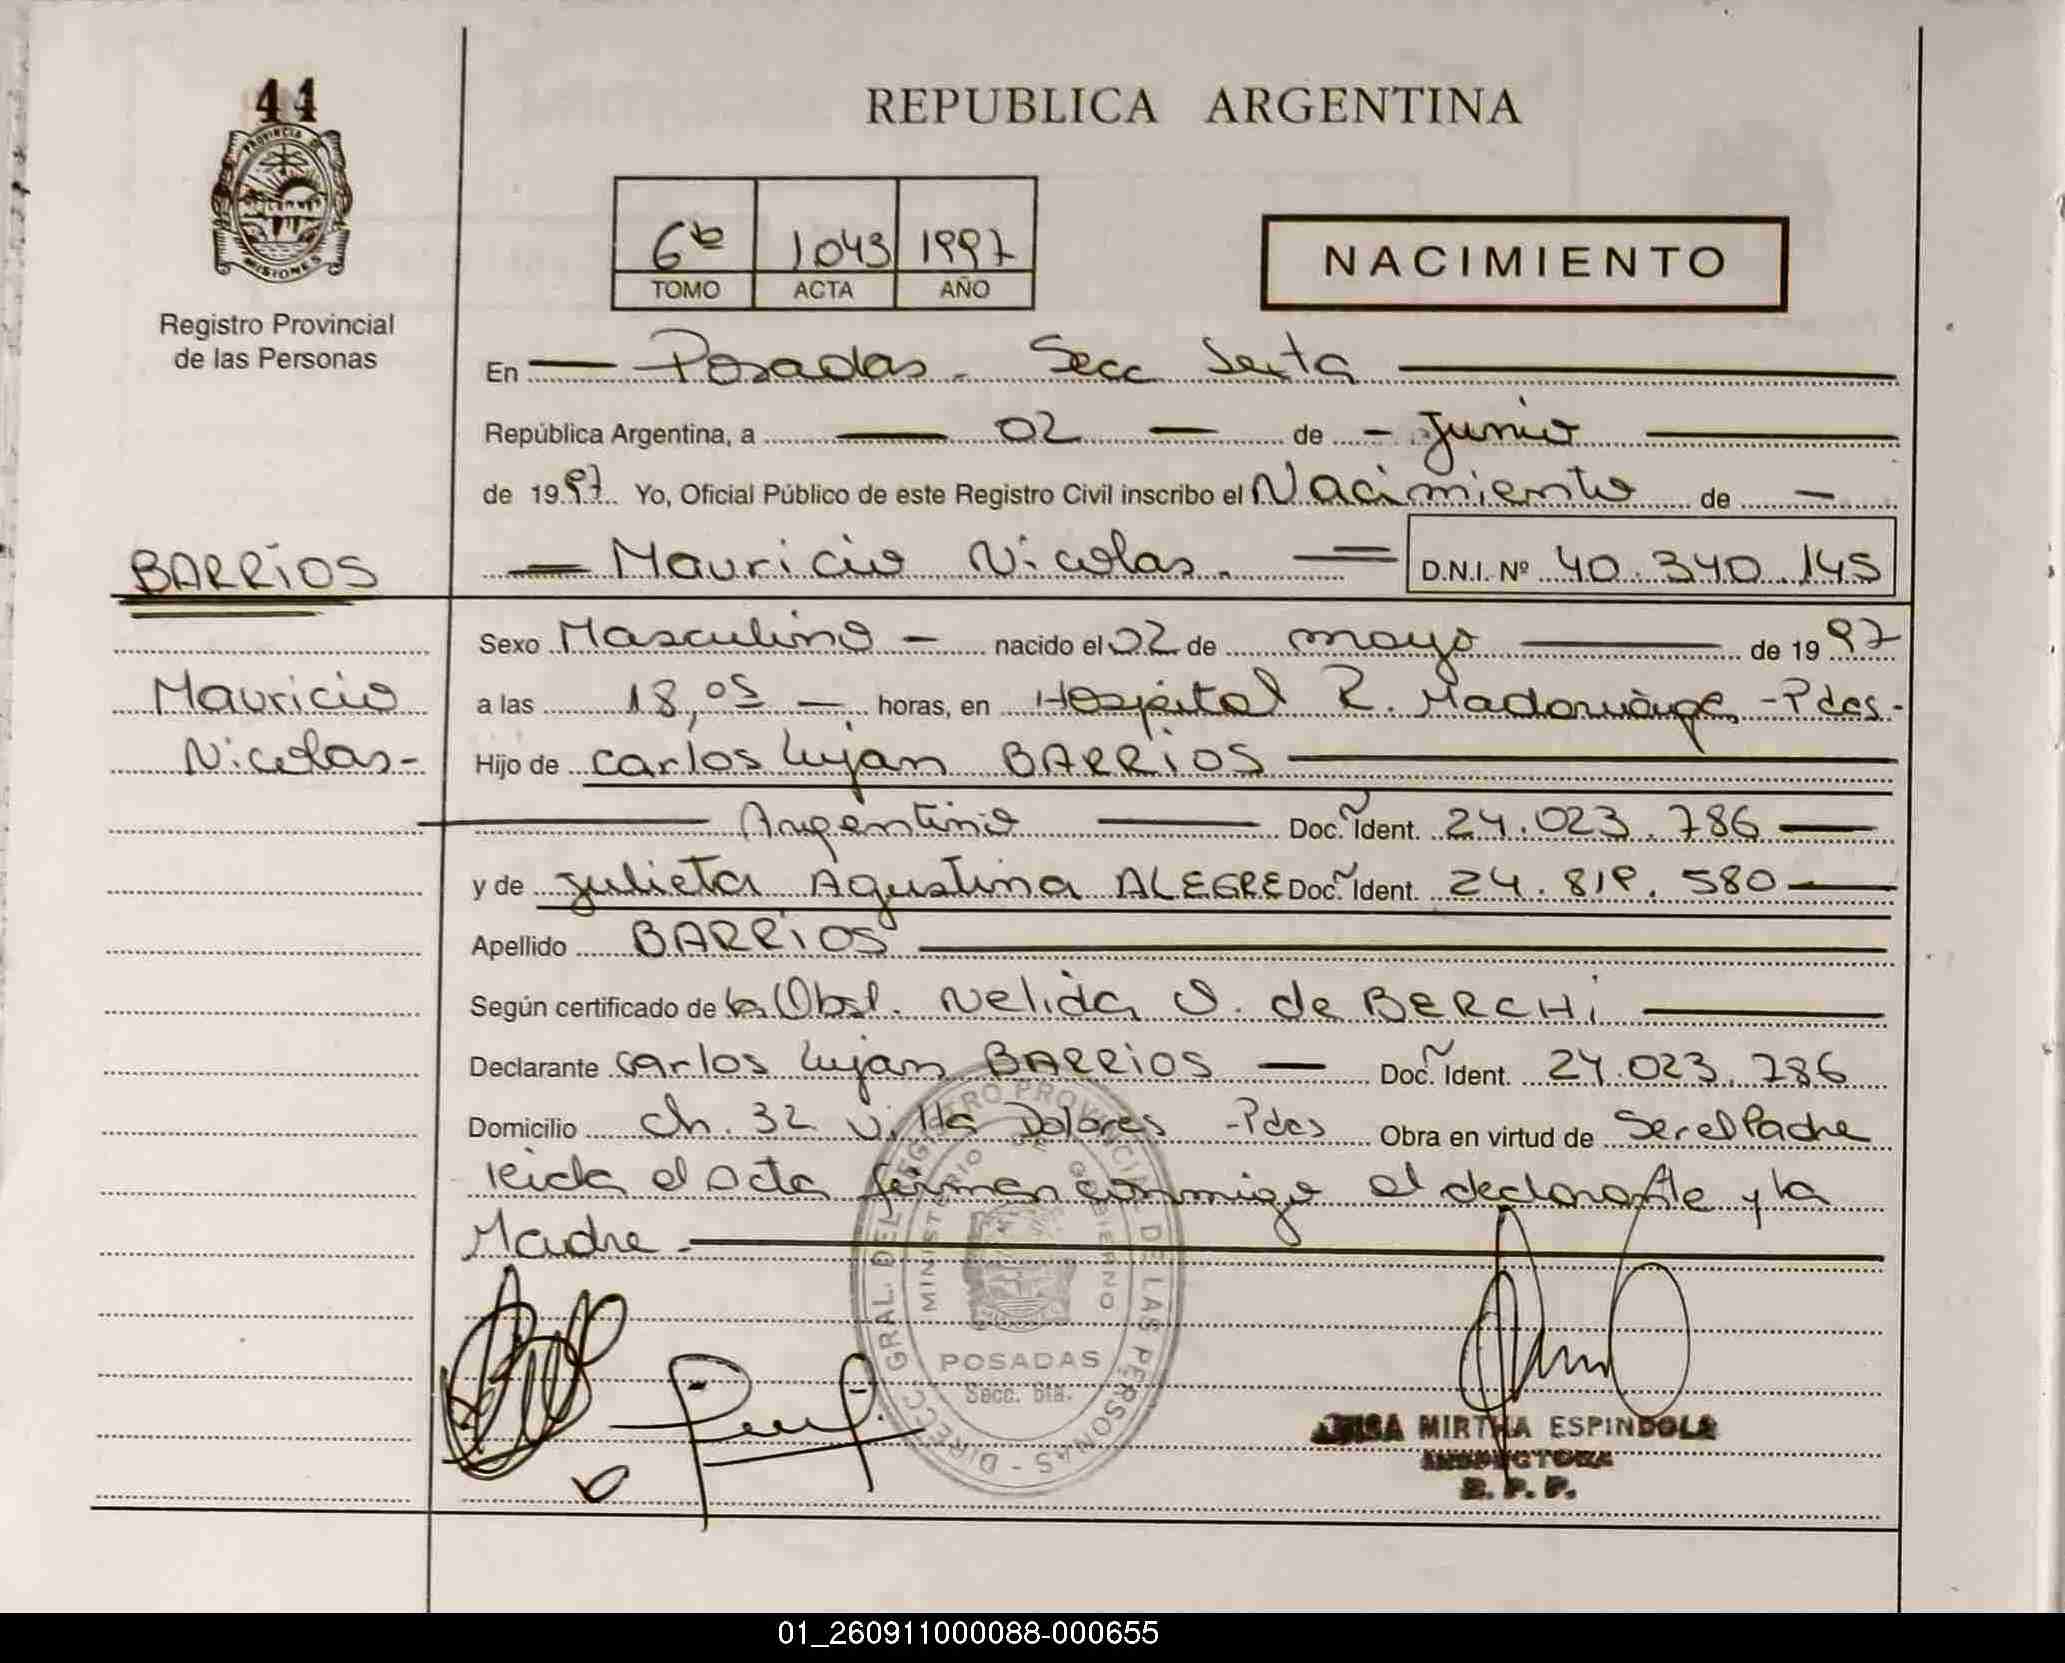 44
PROVINCIA DE
MISIONES
Registro Provincial
de las Personas
REPUBLICA ARGENTINA
6to 1043 1997
TOMO ACTA AÑO
NACIMIENTO
En Posadas - Secc Sexta
República Argentina, a 02 de - Junio
de 1997 Yo, Oficial Público de este Registro Civil inscribo el Nacimiento de -
BARRIOS
Mauricio Nicolas. D.N.I. Nº 40.340.145
Sexo Masculino - nacido el 02 de mayo de 1997
Mauricio
a las 18,05 - horas, en Hospital R. Madariaga - Pdas -
Nicolas -
Hijo de Carlos Lujan BARRIOS
Argentino Doc. Ident. 24.023.786
y de Julieta Agustina ALEGRE Doc. Ident. 24.819.580
Apellido BARRIOS
Según certificado de la Obst. Nelida O. de BERCHI
Declarante Carlos Lujan BARRIOS - Doc. Ident. 24.023.786
Domicilio Ch. 32 Villa Dolores - Pdas Obra en virtud de Ser el Padre
leida el acta firman conmigo el declarante y la
Madre -
DIRECC. GRAL. DEL REGISTRO PROVINCIAL DE LAS PERSONAS -
MINISTERIO DE GOBIERNO
POSADAS
Secc. 6ta.
LUISA MIRTHA ESPINDOLA
INSPECTORA
R. P. P.
01_260911000088-000655